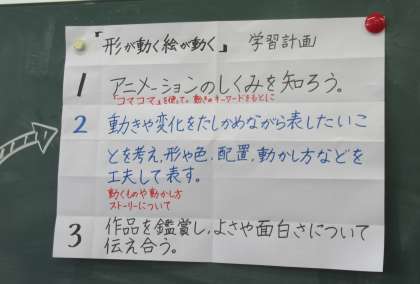 「形が動く絵が動く」 学習計画
1 アニメーションのしくみを知ろう。
「コマコマ」を使って。動きのキーワードをもとに
2 動きや変化をたしかめながら表したいこ
とを考え、形や色、配置、動かし方などを
工夫して表す。
動くものや動かし方
ストーリーについて
3 作品を鑑賞し、よさや面白さについて
伝え合う。